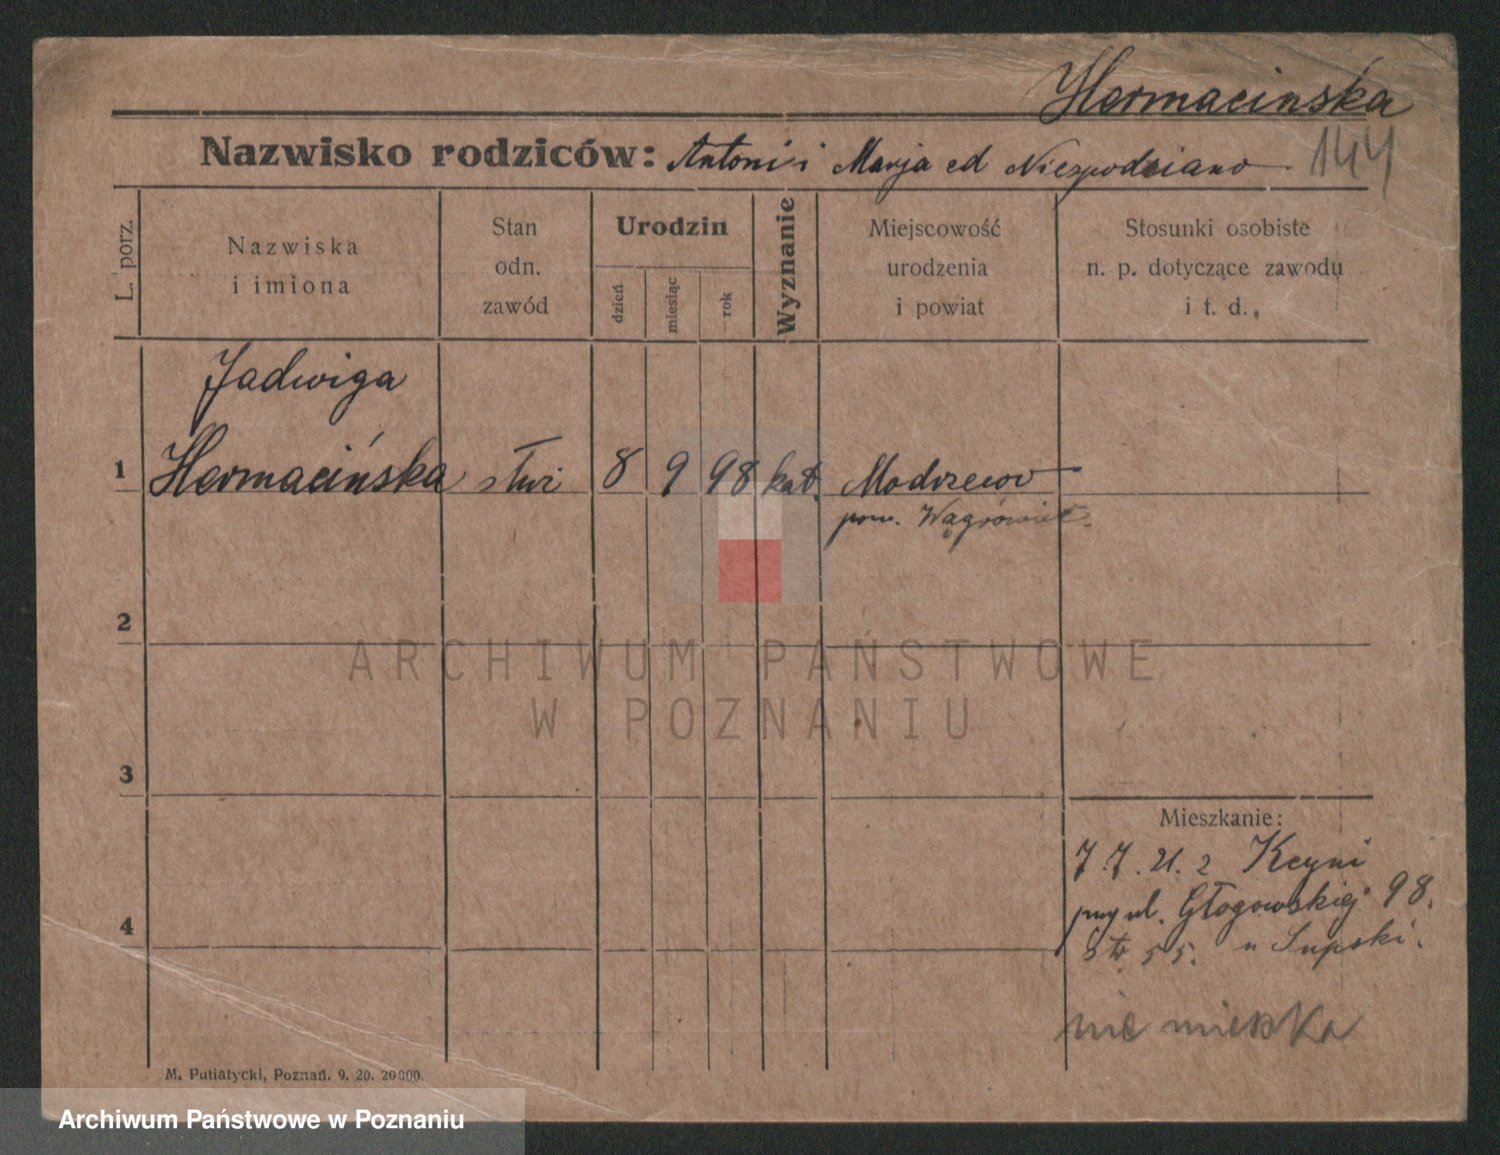 Hermacinska
144
Nazwisko rodziców: Antoni i Marja od Niespodziano
L. porz.
Nazwiska
i imiona
Stan
odn.
zawód
Urodzin
dzień
miesiąc
rok
Wyznanie
Miejscowość
urodzenia
i powiat
Stosunki osobiste
n. p. dotyczące zawodu
i t. d.,
Jadwiga
1 Hermacińska służ 8 9 98 kat. Modrzewo
pow. Wągrowiec.
2
ARCHIWUM PAŃSTWOWE
W POZNANIU
3
Mieszkanie:
7.7.21. z Kcyni
4
przy ul. Głogowskiej 98.
Str 55. u Supski.
nie mieszka
M. Putiatycki, Poznań. 9. 20. 20000.
Archiwum Państwowe w Poznaniu